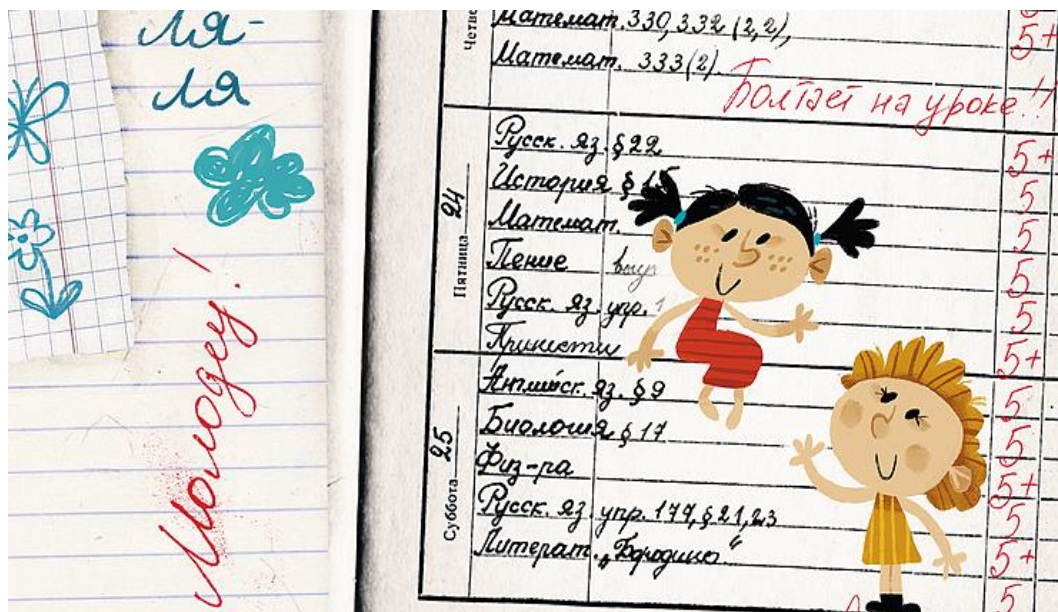 ля-
ля
Молодец!
Четве
Математ. 330, 332 (2,2), 5+
Математ. 333(2).
Болтает на уроке!!
Пятница 24
Русск. яз. § 22 5+
История § 15 5
Математ. 5
Пение 5
Русск. яз. упр. 1 5
Принести 5+
Суббота 25
Английск. яз. § 9 5
Биология § 17 5
Физ-ра 5+
Русск. яз. упр. 177, § 21, 23 5
Литерат. „Бородино“ 5+
5